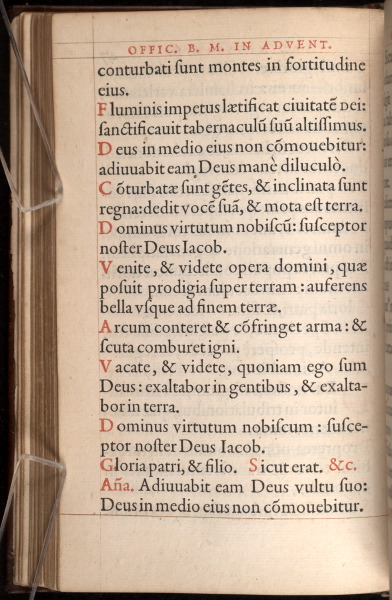 OFFIC. B. M. IN ADVENT.
conturbati ſunt montes in fortitudine
eius.
Fluminis impetus lætificat ciuitatẽ Dei:
ſanctificauit tabernaculũ ſuũ altiſſimus.
Deus in medio eius non cõmouebitur:
adiuuabit eam Deus manè diluculò.
Cõturbatæ ſunt gẽtes, & inclinata ſunt
regna: dedit vocẽ ſuã, & mota eſt terra.
Dominus virtutum nobiſcũ: ſuſceptor
noſter Deus Iacob.
Venite, & videte opera domini, quæ
poſuit prodigia ſuper terram: auferens
bella vſque ad finem terræ.
Arcum conteret & cõfringet arma: &
ſcuta comburet igni.
Vacate, & videte, quoniam ego ſum
Deus: exaltabor in gentibus, & exalta-
bor in terra.
Dominus virtutum nobiſcum: ſuſce-
ptor noſter Deus Iacob.
Gloria patri, & filio. Sicut erat. &c.
Aña. Adiuuabit eam Deus vultu ſuo:
Deus in medio eius non cõmouebitur.